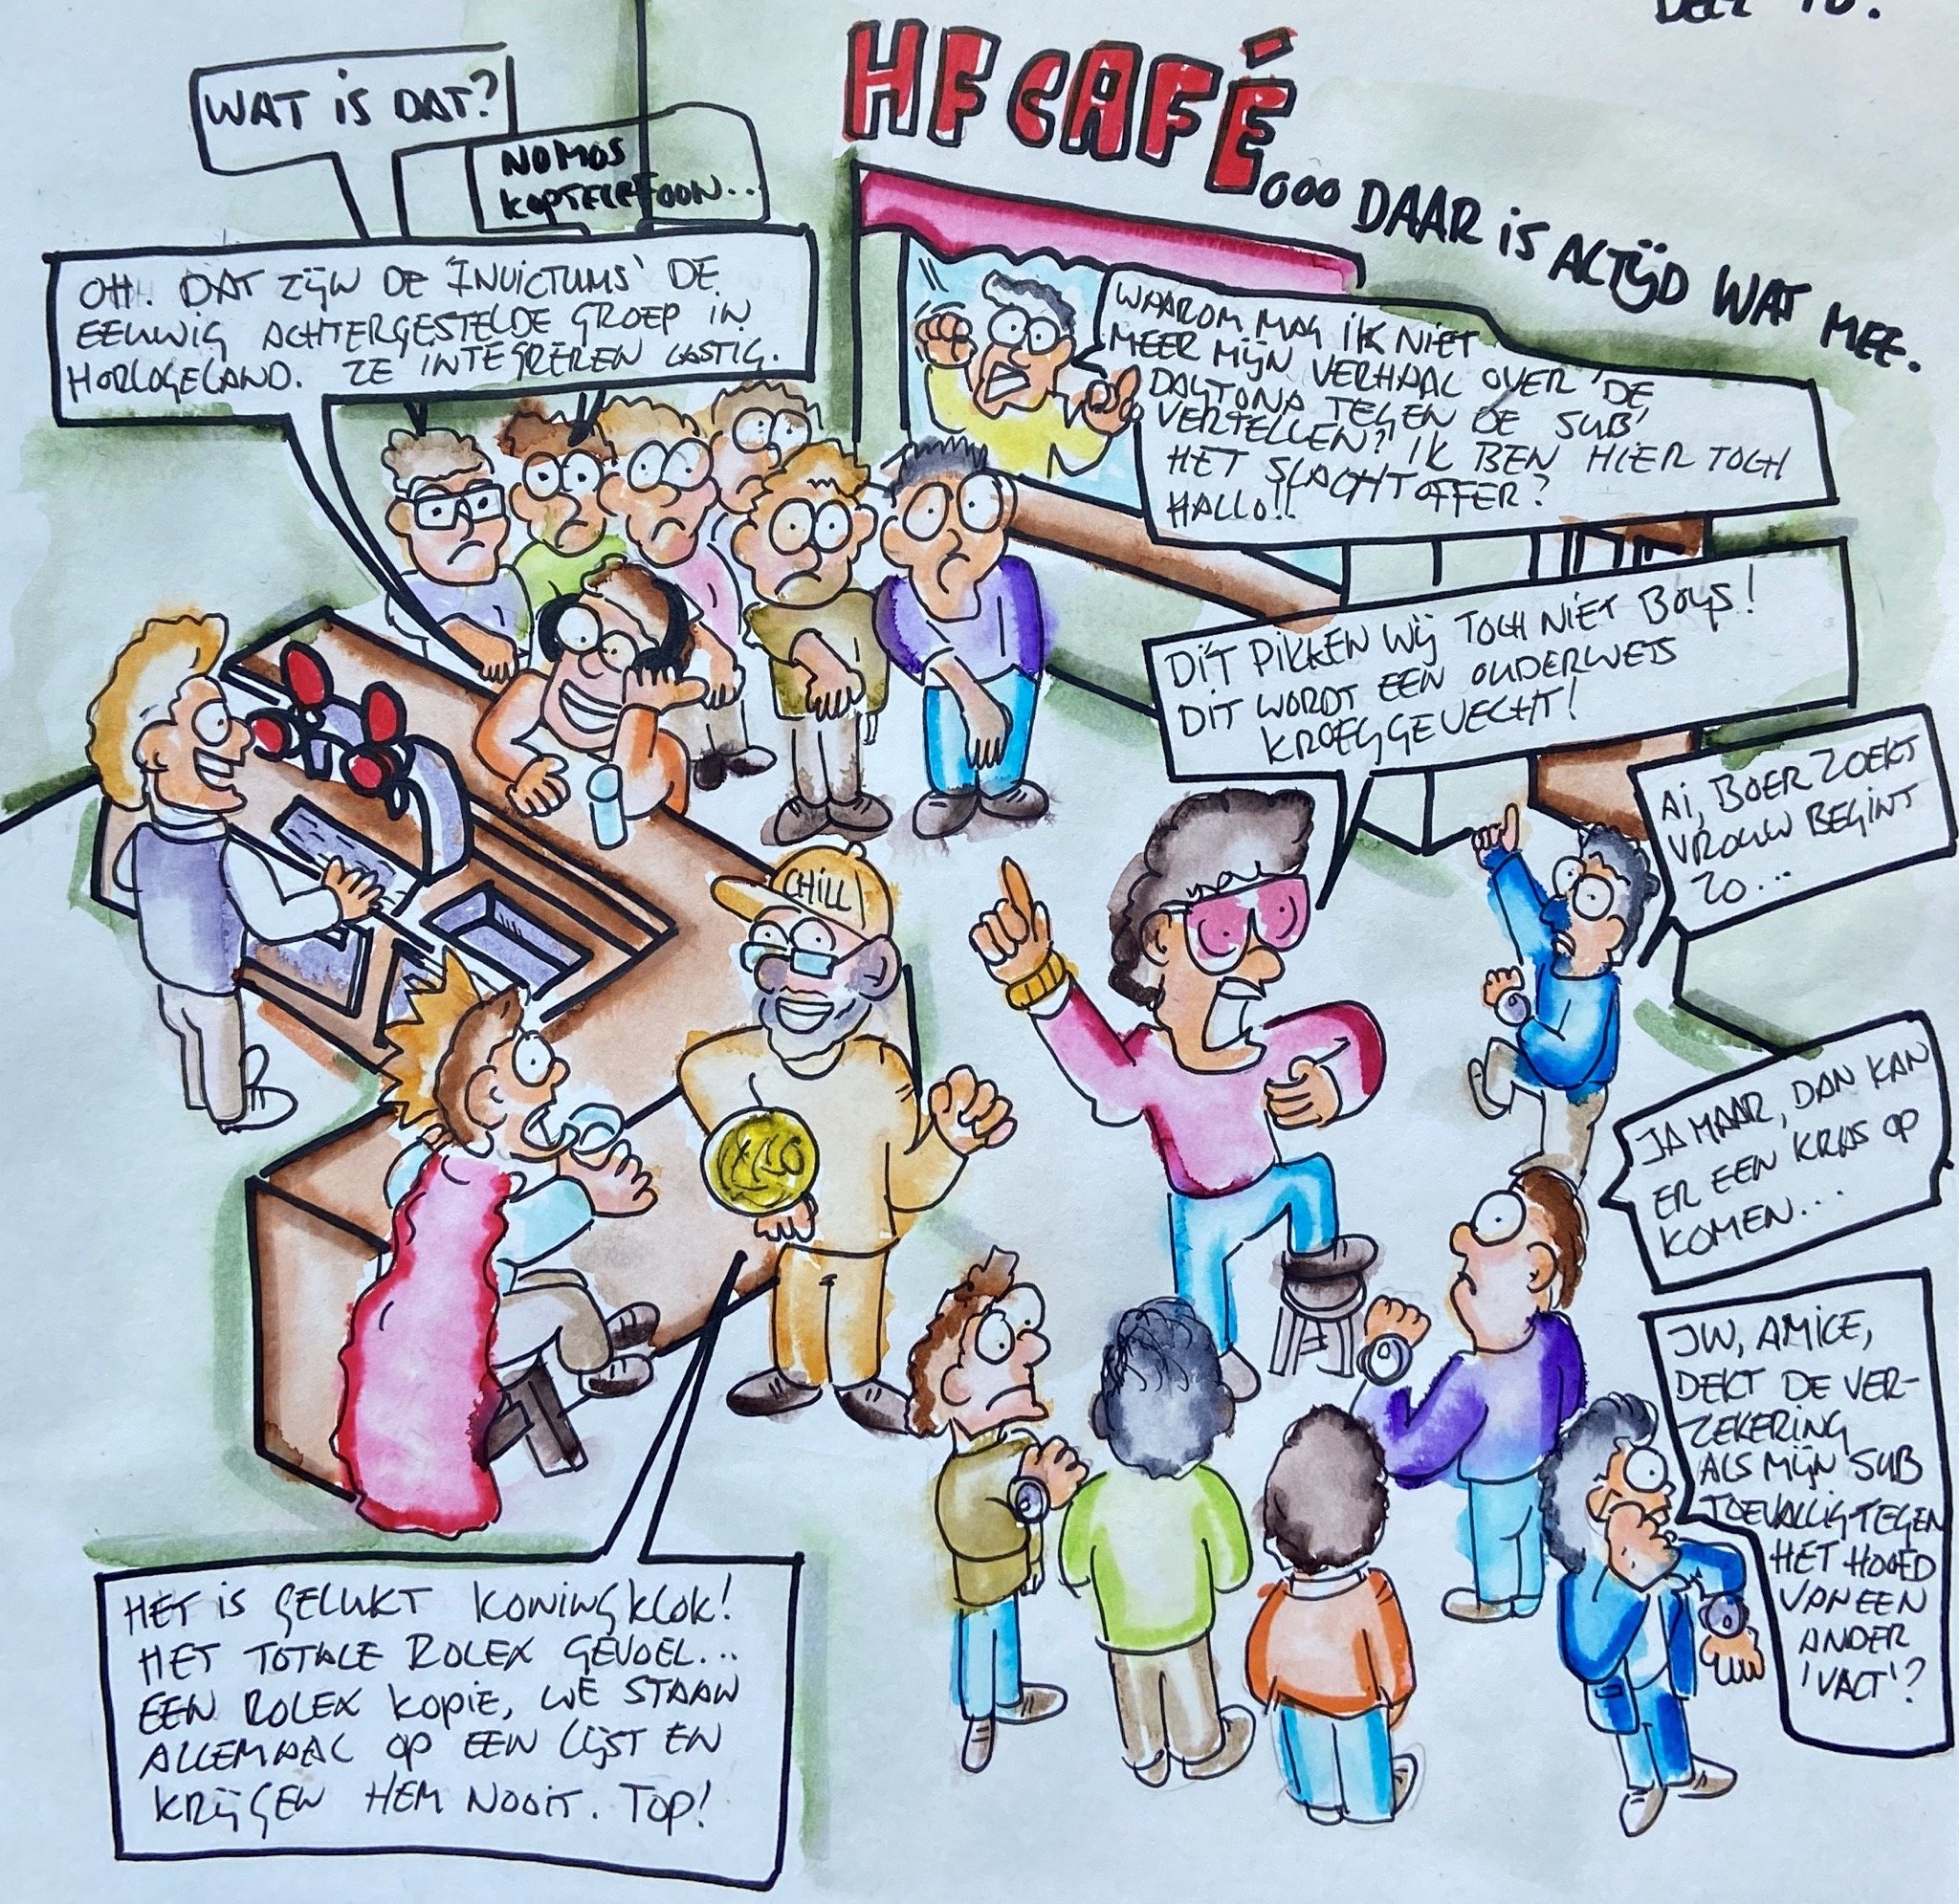 DEEL 10.
HF CAFÉ
... DAAR IS ALTIJD WAT MEE.
WAT IS DAT?
NOMOS
KOPTELEFOON..
OH. DAT ZIJN DE 'INVICTUMS' DE
EEUWIG ACHTERGESTELDE GROEP IN
HORLOGELAND. ZE INTEGREREN LASTIG.
WAAROM MAG IK NIET
MEER MIJN VERHAAL OVER 'DE
DAYTONA TEGEN DE SUB'
VERTELLEN? IK BEN HIER TOCH
HET SLACHTOFFER?
HALLO!!
DIT PIKKEN WIJ TOCH NIET BOYS!
DIT WORDT EEN OUDERWETS
KROEGGEVECHT!
AI, BOER ZOEKT
VROUW BEGINT
ZO...
CHILL
JA MAAR, DAN KAN
ER EEN KRAS OP
KOMEN...
JW, AMICE,
DEKT DE VER-
ZEKERING
ALS MIJN SUB
TOEVALLIG TEGEN
HET HOOFD
VAN EEN
ANDER
'VALT'?
HET IS GELUKT KONING KLOK!
HET TOTALE ROLEX GEVOEL...
EEN ROLEX KOPIE, WE STAAN
ALLEMAAL OP EEN LIJST EN
KRIJGEN HEM NOOIT. TOP!